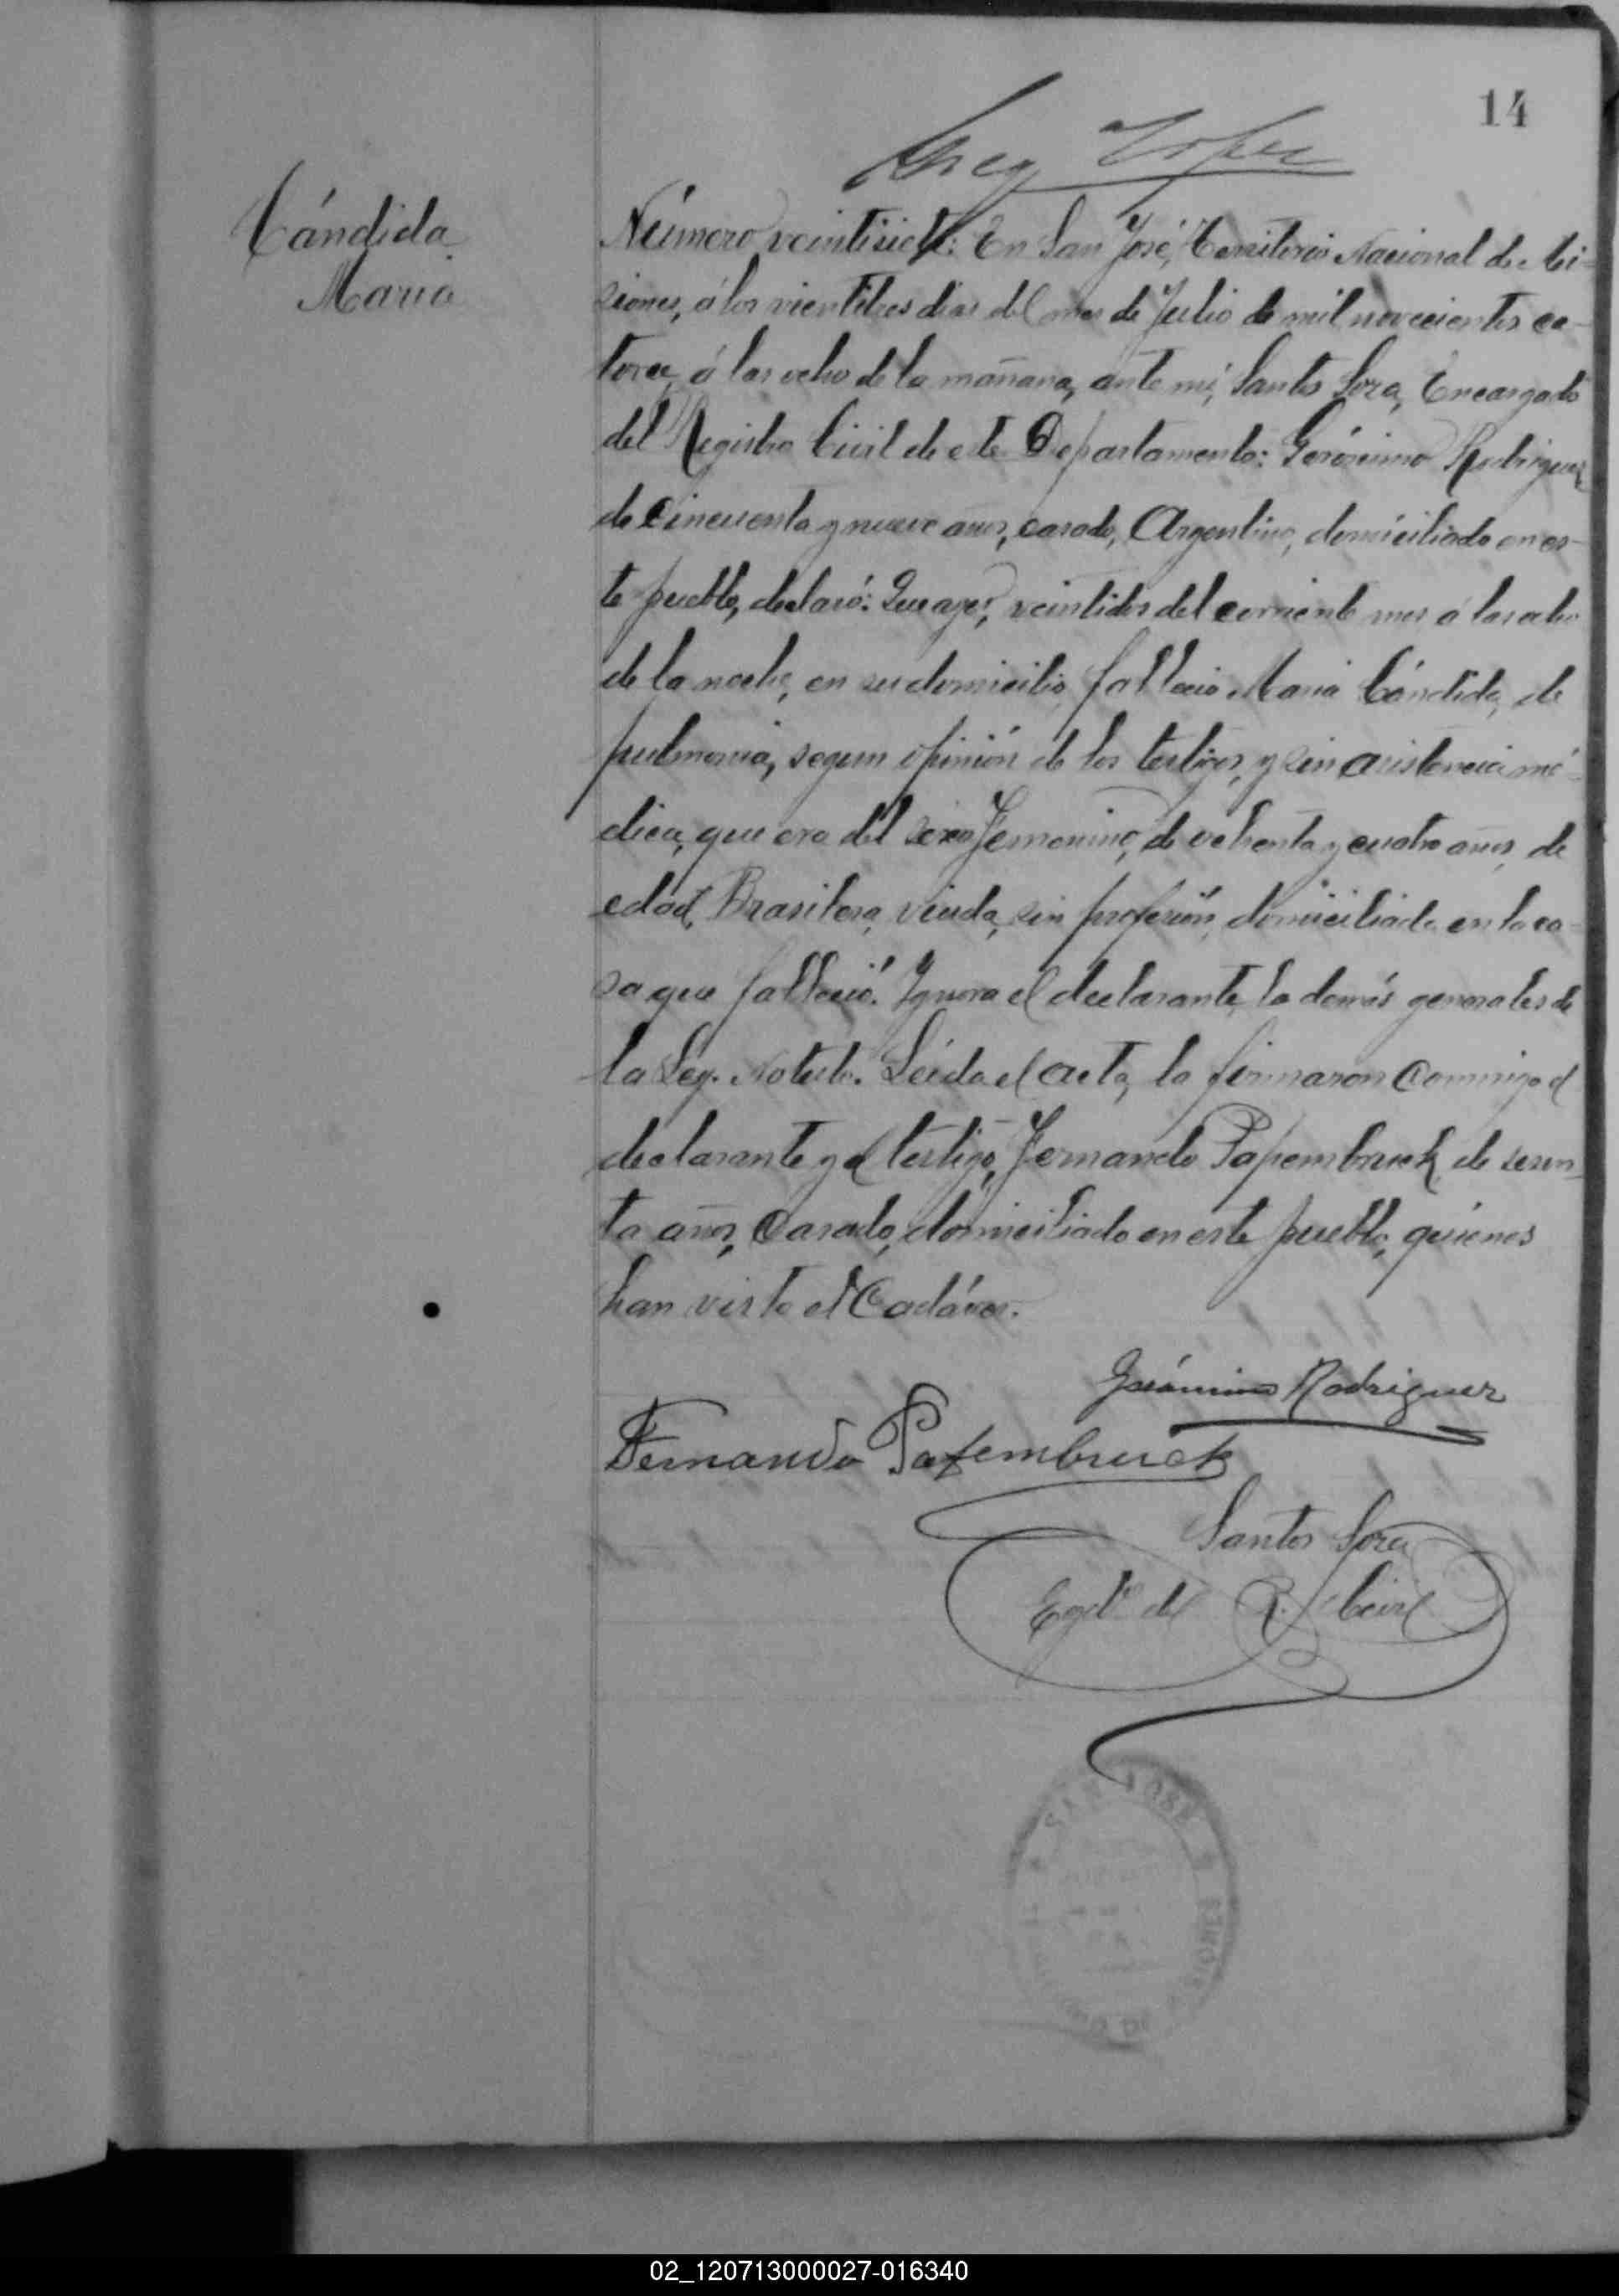 14
Greg Lopez
Cándida
Maria
Número veintisiete: En San José, Territorio Nacional de Mi-
siones, á los vientitres dias del mes de Julio de mil novecientos ca-
torce, á las ocho de la mañana, ante mi, Santos Sora, Encargado
del Registro Civil de este Departamento: Gerónimo Rodriguez
de cincuenta y nueve años, casado, Argentino, domiciliado en es-
te pueblo, declaró: Que ayer, veintidos del corriente mes á las ocho
de la noche, en su domicilio falleció Maria Cándida, de
pulmonia, segun opinión de los testigos, y sin asistencia mé-
dica, que era del sexo Femenino, de ochenta y cuatro años de
edad, Brasilera, viuda, sin profesión, domiciliada en la ca-
sa que falleció. Ignora el declarante, la demás generales de
la Ley. No testó. Leida el acta, la firmaron conmigo el
declarante y el testigo, Fernando Papembruck, de sesen-
ta años, Casado, domiciliado en este pueblo, quienes
han visto el Cadáver.
Gerónimo Rodriguez
Fernando Papembruck
Santos Sora
Egdo del R. Civil
SAN JOSE
02_120713000027-016340